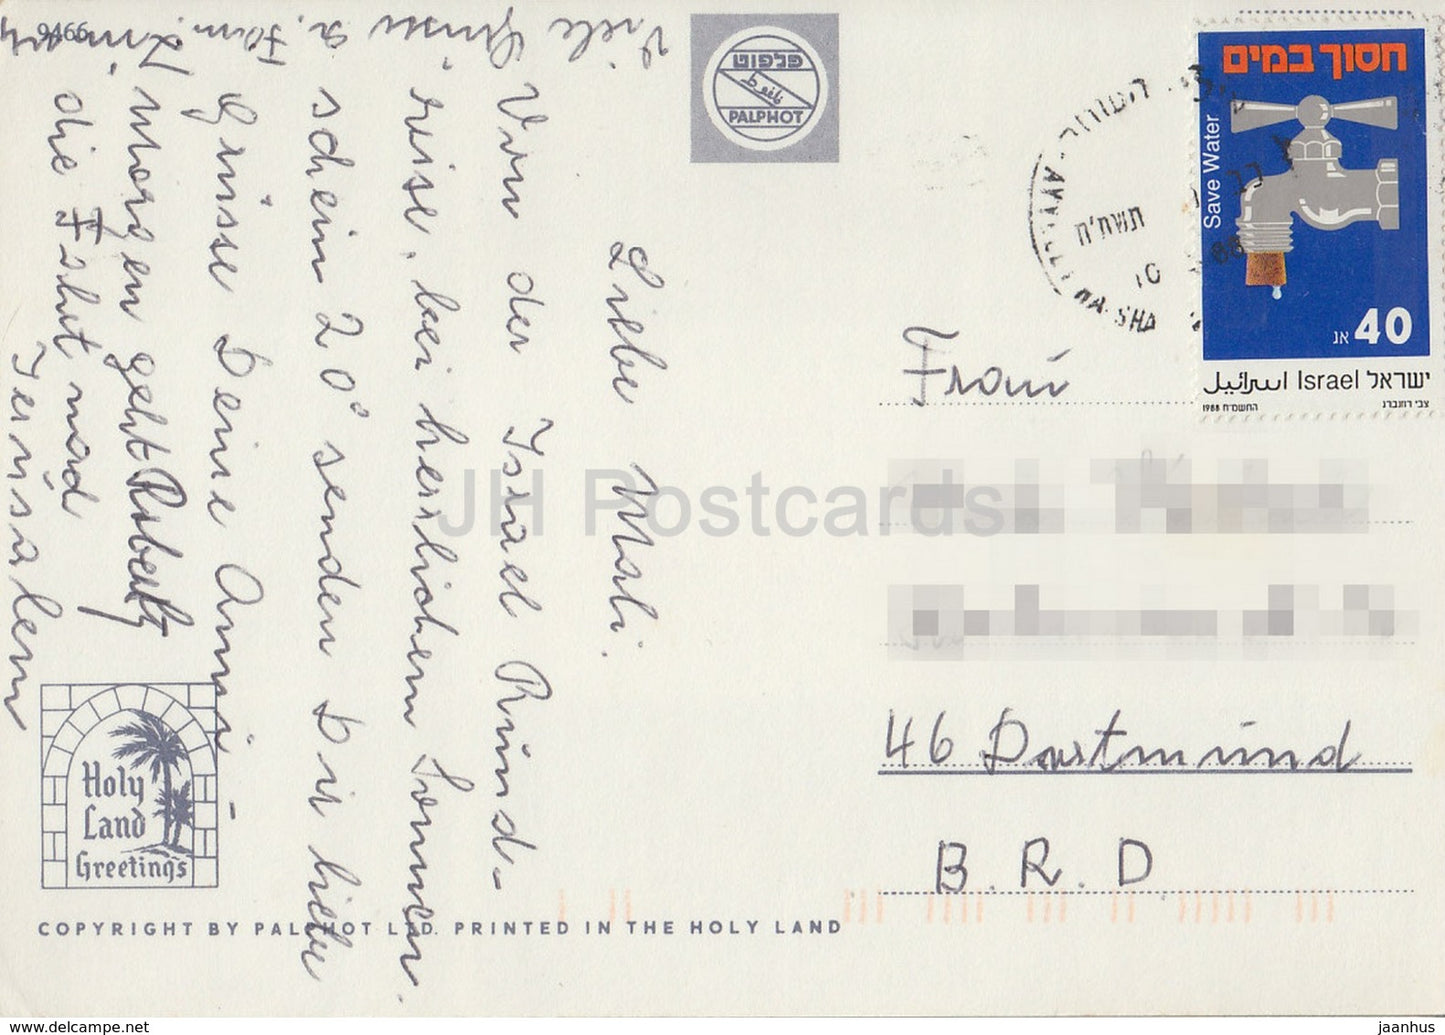 9466
Liebe Mali.
Von der Israel Rund-
reise, bei herrlichem Sommer.
schein 20° senden Dir liebe
Grüsse Deine Anni -
morgen geht
die Fahrt nach
Jerusalem
Viele Grüsse
פלפוט
PALPHOT
חסוך במים
Save Water
תשמ"ח
40 אג
ישראל Israel اسرائيل
1988 התשמ"ח
צבי רוזנברג
Frau
46 Dortmund
B. R. D
Holy
Land
Greetings
COPYRIGHT BY PALPHOT LTD. PRINTED IN THE HOLY LAND
JH Postcards
delcampe.net
jaanhus